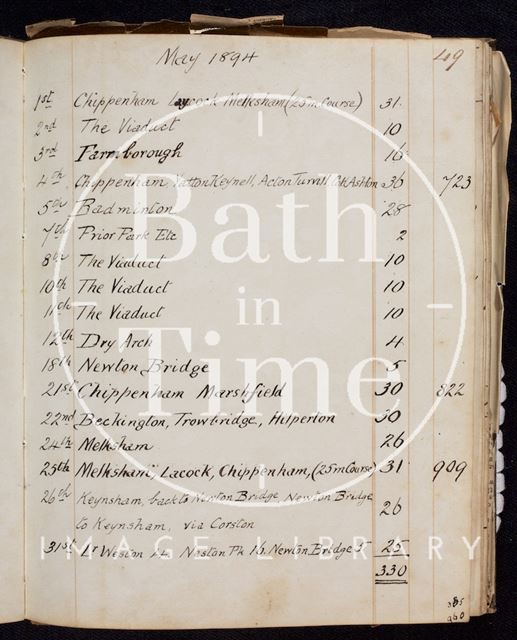 May 1894
49
1st Chippenham Laycock Melksham (25m Course) 31
2nd The Viaduct 10
3rd Farmborough 16
4th Chippenham, Yatton Keynell, Acton Turvill, Ashton 36 723
5th Badminton 28
7th Prior Park Etc 2
8th The Viaduct 10
10th The Viaduct 10
11th The Viaduct 10
12th Dry Arch 4
18th Newton Bridge 5
21st Chippenham Marshfield 30 822
22nd Beckington, Trowbridge, Hilperton 30
24th Melksham 26
25th Melksham, Lacock, Chippenham, (25m Course) 31 909
26th Keynsham, back to Newton Bridge, Newton Bridge
to Keynsham, via Corston 26
31st Weston 4 Pk 16 Newton Bridge 5 25
330
Bath
in
Time
IMAGE LIBRARY